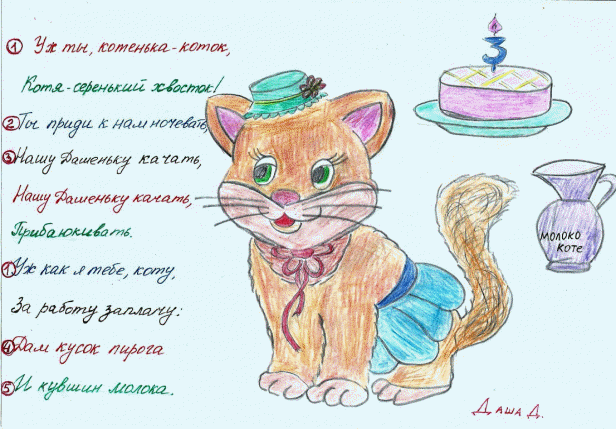 ① Уж ты, котенька-коток,
Котя-серенький хвосток!
② Ты приди к нам ночевать,
③ Нашу Дашеньку качать,
Нашу Дашеньку качать,
Прибаюкивать.
① Уж как я тебе, коту,
За работу заплачу:
④ Дам кусок пирога
⑤ И кувшин молока.
3
МОЛОКО
КОТЕ
Даша Д.